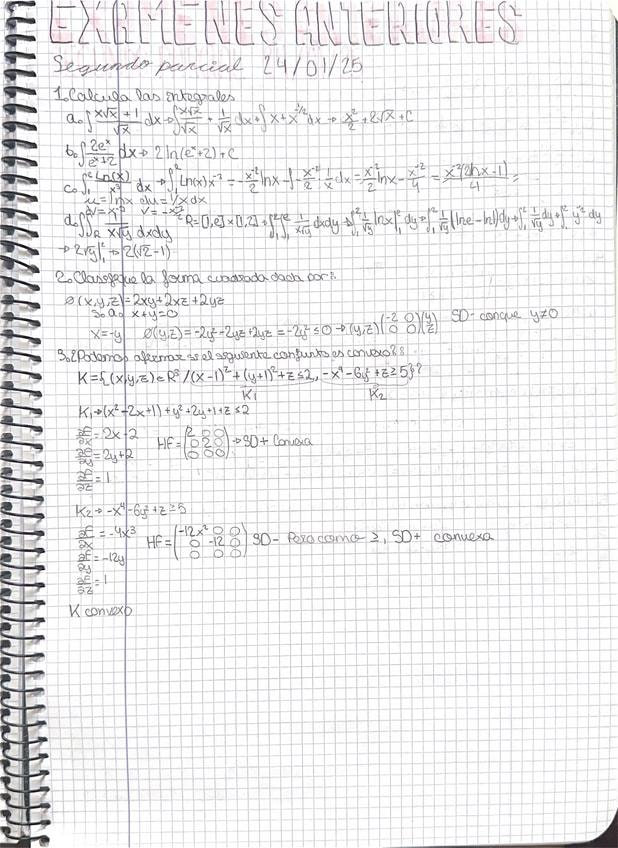 EXÁMENES ANTERIORES
Segundo parcial 24/01/25
1. Calcula las integrales
a. ∫ (x√x + 1)/√x dx → ∫ x√x/√x + 1/√x dx → ∫ x + x^(-1/2) dx → x²/2 + 2√x + C
b. ∫ 2eˣ/(eˣ+2) dx → 2 ln(eˣ+2) + C
c. ∫₁² ln(x)/x³ dx → ∫₁² ln(x) x⁻³ = -x⁻²/2 lnx - ∫ -x⁻²/2 · 1/x dx = x⁻²/2 lnx - x⁻²/4 = x⁻²(2lnx-1)/4 =
u = lnx du = 1/x dx
dV = x⁻³ V = -x⁻²/2
d. ∫∫_R 1/(x√y) dxdy R = [1,e] × [1,2] → ∫₁² ∫₁ᵉ 1/(x√y) dxdy → ∫₁² 1/√y lnx |₁² dy → ∫₁² 1/√y (lne - ln1) dy → ∫₁² 1/√y dy → ∫₁² y^(-1/2) dy
→ 2√y |₁² → 2(√2 - 1)
2. Clasifique la forma cuadrada dada por:
ø(x,y,z) = 2xy + 2xz + 2yz
s.a. x+y=0
x=-y ø(y,z) = -2y² - 2yz + 2yz = -2y² ≤ 0 → (y,z) (-2 0 0 0) (y z) SD- aunque y≠0
3. ¿Podemos afirmar si el siguiente conjunto es convexo?:
K = {(x,y,z) ∈ R³ / (x-1)² + (y+1)² + z ≤ 2, -x⁴ - 6y² + z ≥ 5}?
K₁ K₂
K₁ → (x² - 2x + 1) + y² + 2y + 1 + z ≤ 2
∂F/∂x = 2x - 2
∂F/∂y = 2y + 2 HF = (2 0 0 0 2 0 0 0 0) → SD+ Convexa
∂F/∂z = 1
K₂ → -x⁴ - 6y² + z ≥ 5
∂F/∂x = -4x³
∂F/∂y = -12y HF = (-12x² 0 0 0 -12 0 0 0 0) SD- Pero como ≥, SD+ convexa
∂F/∂z = 1
K convexo